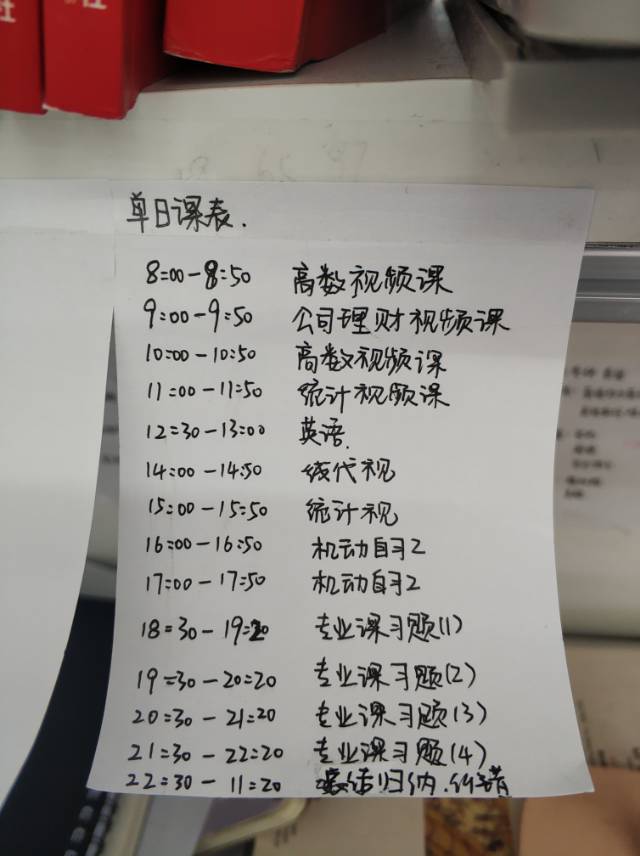 社
单日课表.
8:00-8:50 高数视频课
9:00-9:50 公司理财视频课
10:00-10:50 高数视频课
11:00-11:50 统计视频课
12:30-13:00 英语.
14:00-14:50 线代视
15:00-15:50 统计视
16:00-16:50 机动自习2
17:00-17:50 机动自习2
18:30-19:20 专业课习题(1)
19:30-20:20 专业课习题(2)
20:30-21:20 专业课习题(3)
21:30-22:20 专业课习题(4)
22:30-11:20 总结归纳.